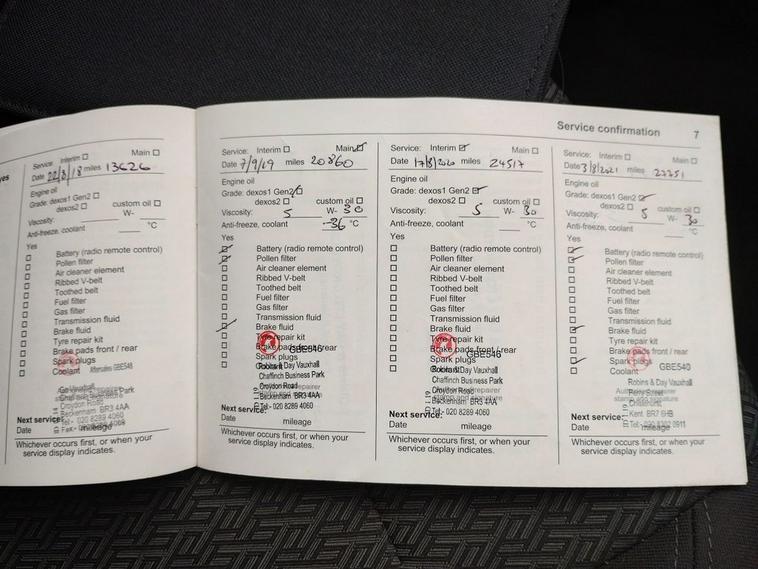 Service confirmation 7
Service: Interim ☐ Main ☐
Date 22/8/18 miles 13626
Engine oil
Grade: dexos1 Gen2 ☐
dexos2 ☐ custom oil ☐
Viscosity: W-
Anti-freeze, coolant °C
Yes
☐ Battery (radio remote control)
☐ Pollen filter
☐ Air cleaner element
☐ Ribbed V-belt
☐ Toothed belt
☐ Fuel filter
☐ Gas filter
☐ Transmission fluid
☐ Brake fluid
☐ Tyre repair kit
☐ Brake pads front / rear
☐ Spark plugs
☐ Coolant
Croydon Road
Beckenham BR3 4AA
Next service:
Date mileage
Whichever occurs first, or when your
service display indicates.
Service: Interim ☐ Main ☑
Date 7/9/19 miles 20860
Engine oil
Grade: dexos1 Gen2 ☑
dexos2 ☐ custom oil ☐
Viscosity: 5 W- 30
Anti-freeze, coolant -36 °C
Yes
☑ Battery (radio remote control)
☑ Pollen filter
☐ Air cleaner element
☐ Ribbed V-belt
☐ Toothed belt
☐ Fuel filter
☐ Gas filter
☐ Transmission fluid
☑ Brake fluid
☐ Tyre repair kit
☐ Brake pads front / rear
GBE546
☐ Spark plugs
☐ Coolant
Robins & Day Vauxhall
Chaffinch Business Park
Croydon Road
Beckenham BR3 4AA
Tel:- 020 8289 4060
Next service:
Date mileage
Whichever occurs first, or when your
service display indicates.
Service: Interim ☑ Main ☐
Date 17/8/2020 miles 24517
Engine oil
Grade: dexos1 Gen2 ☑
dexos2 ☐ custom oil ☐
Viscosity: 5 W- 30
Anti-freeze, coolant °C
Yes
☐ Battery (radio remote control)
☐ Pollen filter
☐ Air cleaner element
☐ Ribbed V-belt
☐ Toothed belt
☐ Fuel filter
☐ Gas filter
☐ Transmission fluid
☐ Brake fluid
☐ Tyre repair kit
☐ Brake pads front / rear
GBE546
☐ Spark plugs
☐ Coolant
Robins & Day Vauxhall
Chaffinch Business Park
Croydon Road
Beckenham BR3 4AA
Tel:- 020 8289 4060
Next service:
Date mileage
Whichever occurs first, or when your
service display indicates.
Service: Interim ☐ Main ☐
Date 3/8/2021 miles
Engine oil
Grade: dexos1 Gen2 ☑
dexos2 ☐ custom oil ☐
Viscosity: 5 W- 30
Anti-freeze, coolant °C
Yes
☑ Battery (radio remote control)
☑ Pollen filter
☐ Air cleaner element
☐ Ribbed V-belt
☐ Toothed belt
☐ Fuel filter
☐ Gas filter
☐ Transmission fluid
☑ Brake fluid
☐ Tyre repair kit
☐ Brake pads front / rear
☑ Spark plugs
☐ Coolant GBE540
Robins & Day Vauxhall
Perry Street
Kent. BR7 6HB
Next service:
Date mileage
Whichever occurs first, or when your
service display indicates.